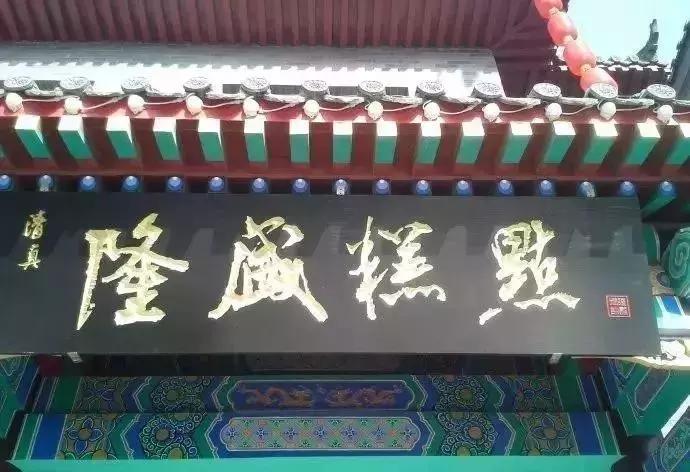 清真
隆盛糕點